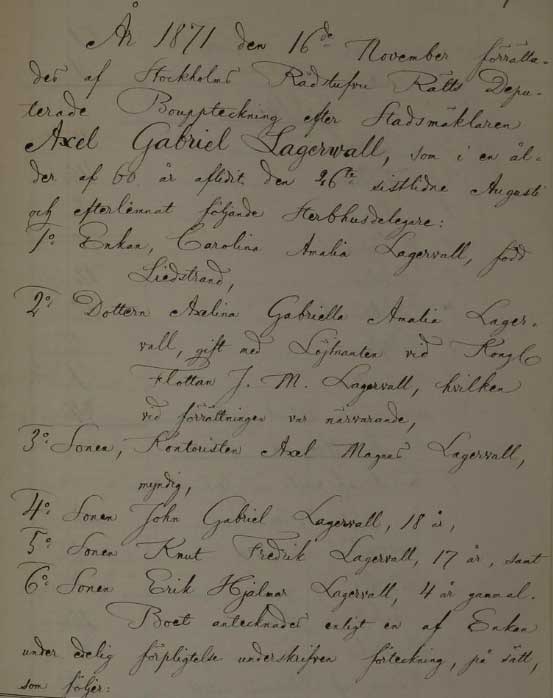 År 1871 den 16de November förrätta-
des af Stockholms Rådstufvu Rätts Depu-
terade Bouppteckning efter Stadsmäklaren
Axel Gabriel Lagerwall, som i en ål-
der af 60 år aflidit den 26te sistlidne Augusti
och efterlemnat följande Sterbhusdelegare:
1o: Enkan, Carolina Amalia Lagervall, född
Liedstrand,
2o: Dottern Axelina Gabriella Amalia Lager-
vall, gift med Löjtnanten vid Kongl
Flottan J. M. Lagervall, hvilken
vid förrättningen var närvarande,
3o: Sonen, Kontoristen Axel Magnus Lagervall,
myndig,
4o: Sonen John Gabriel Lagervall, 18 år,
5o: Sonen Knut Fredrik Lagervall, 17 år, samt
6o: Sonen Erik Hjalmar Lagervall, 4 år gammal.
Boet antecknades enligt en af Enkan
under edelig förpligtelse underskrifven förteckning, på sätt,
som följer: